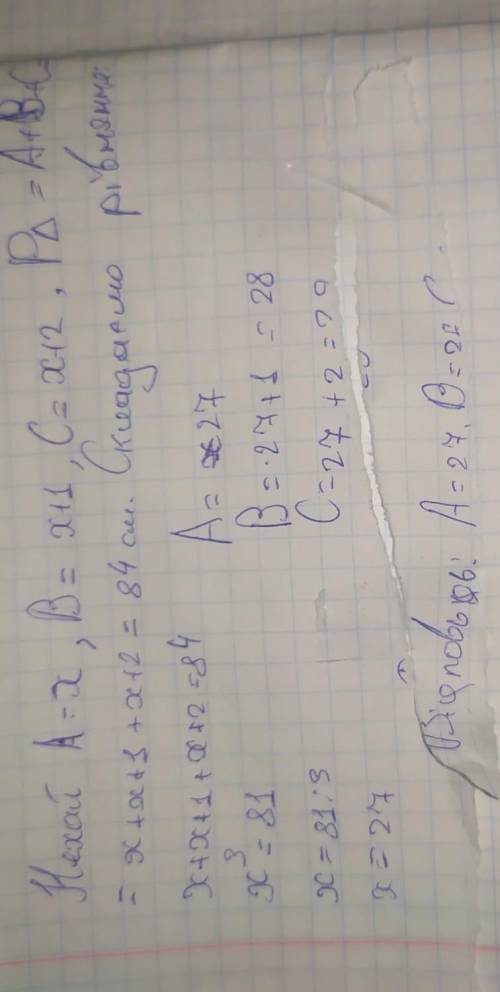 Нехай A = x, B = x+1, C = x+2, P△ = A+B+C=
= x+x+1+x+2 = 84 см. Складаємо рівняння:
x+x+1+x+2=84
x³ = 81
x = 81:3
x = 27
A = 27
B = 27+1 = 28
C = 27+2 = 29
Відповідь: A = 27, B = 28 C